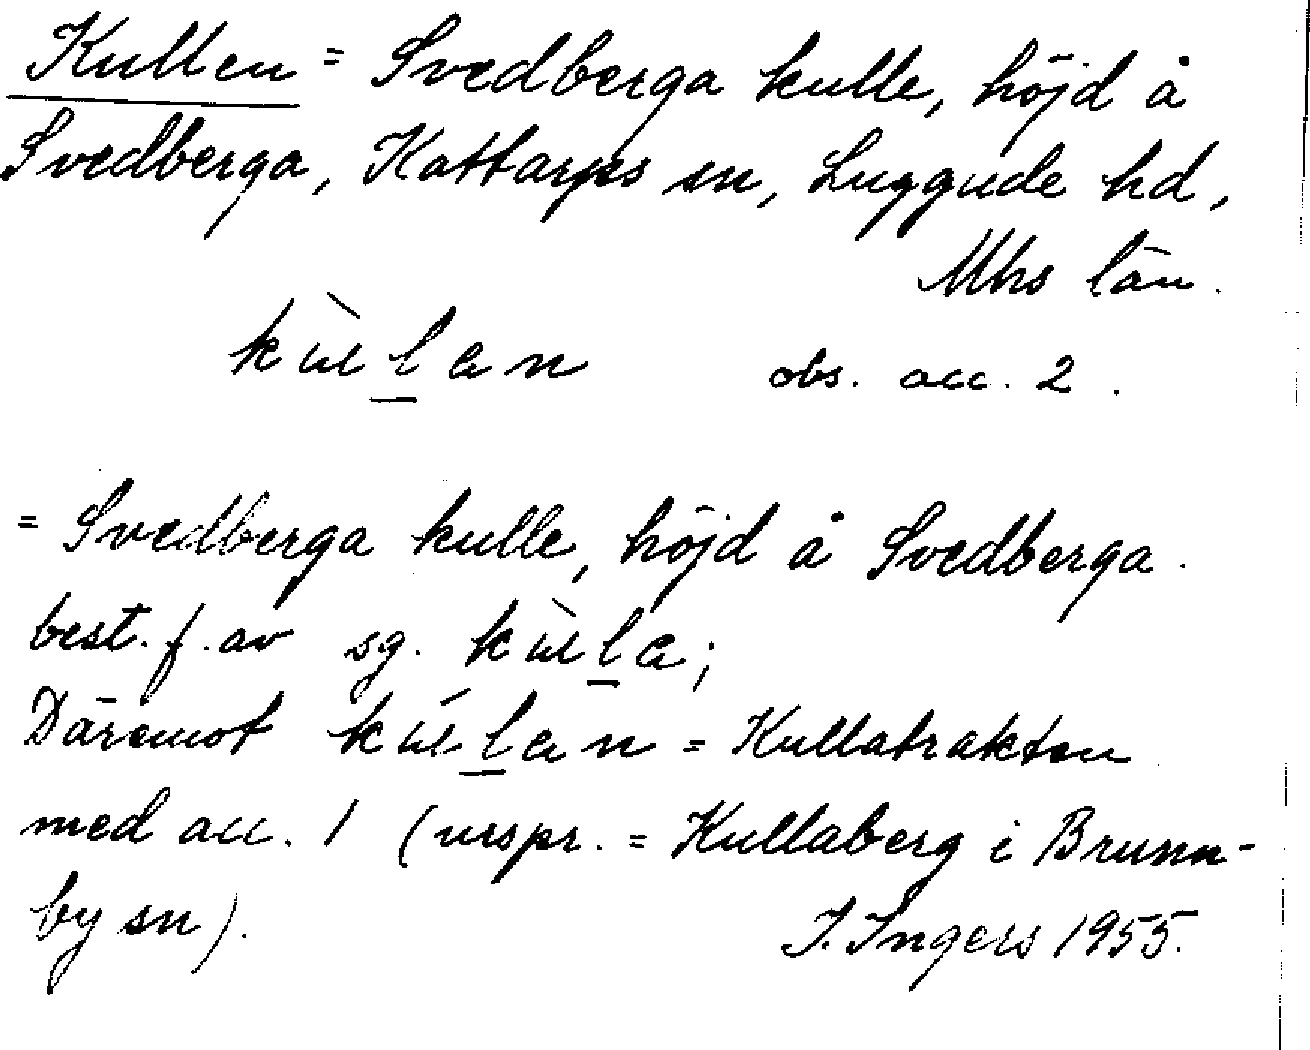 Kullen = Svedberga kulle, höjd å
Svedberga, Kattarps sn, Luggude hd,
Mhs län.
kùlan obs. acc. 2.
= Svedberga kulle, höjd å Svedberga.
best. f. av sg. kùla;
Däremot kúlan = Kullatrakten
med acc. 1 (urspr. = Kullaberg i Brunn-
by sn).
I. Ingers 1955.